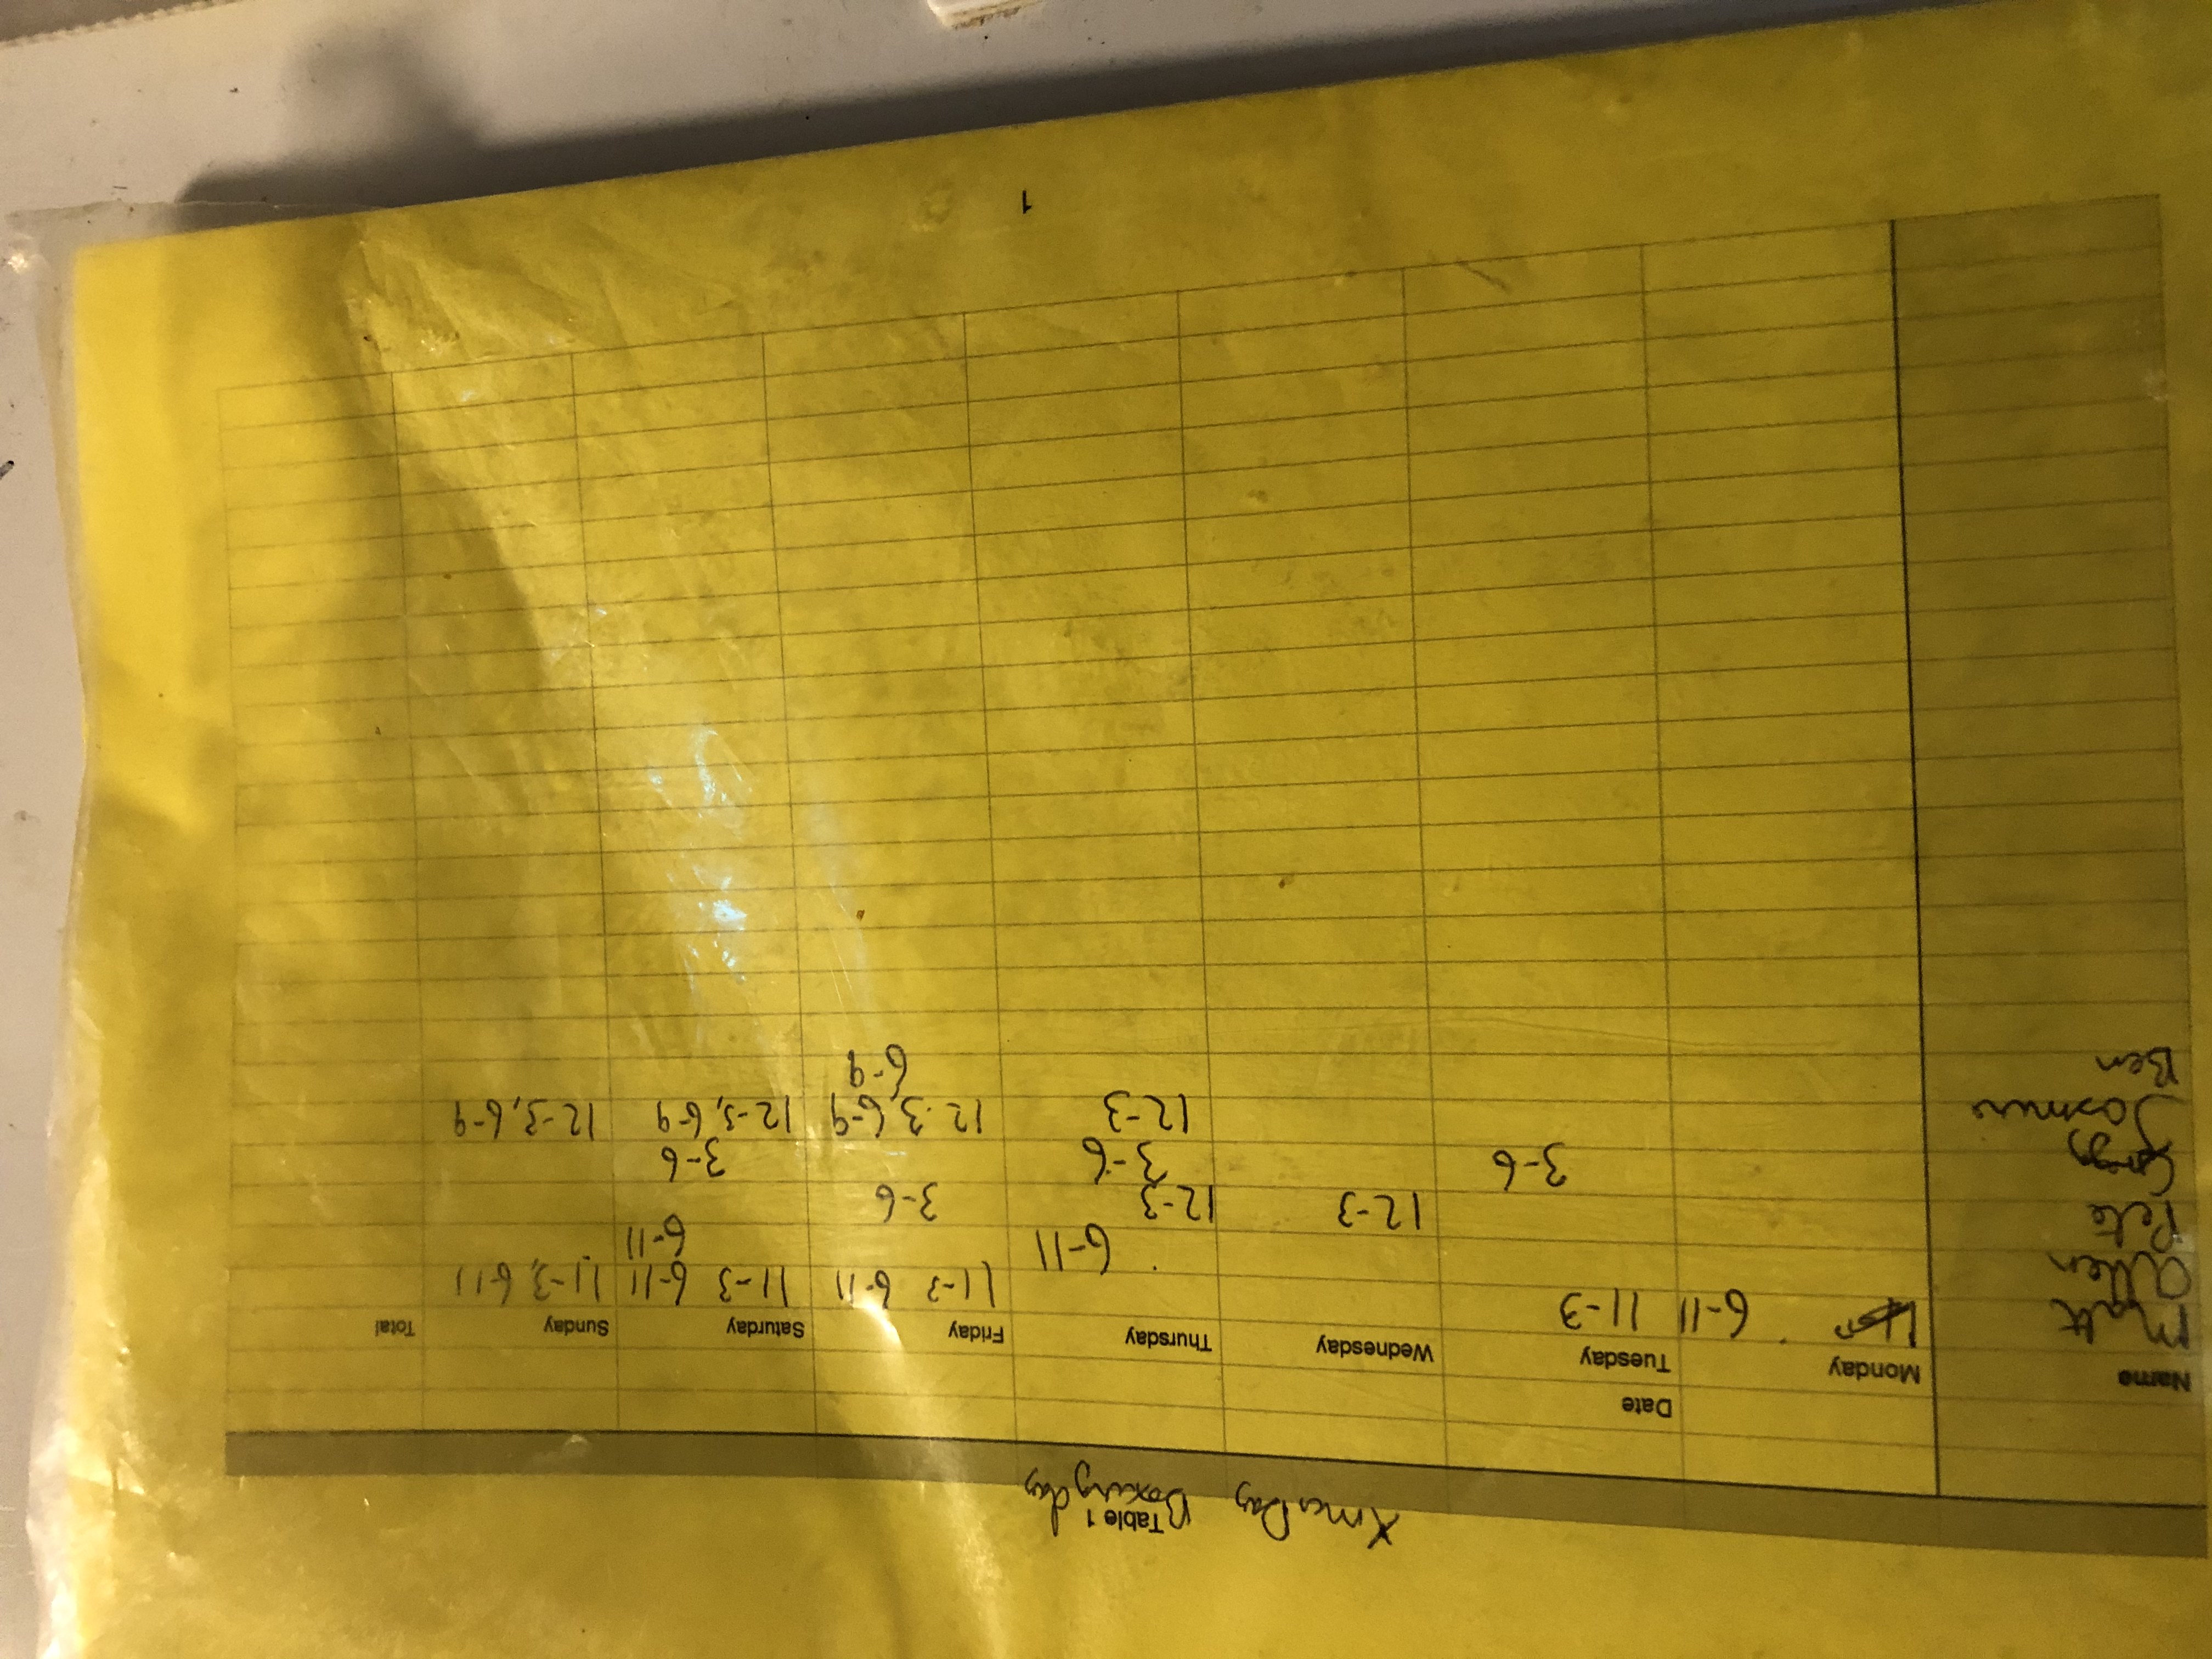 Xmas Day Boxing day
Table 1
Date
Name Monday Tuesday Wednesday Thursday Friday Saturday Sunday Total
Matt 6-11 11-3 11-3 6-11 11-3 6-11 11-3, 6-11
Allen 6-11 6-11
Pete 12-3 12-3 3-6
Gregg 3-6 3-6 3-6
Jasmine 12-3 12-3, 6-9 12-3, 6-9 12-3, 6-9
Ben 6-9
1